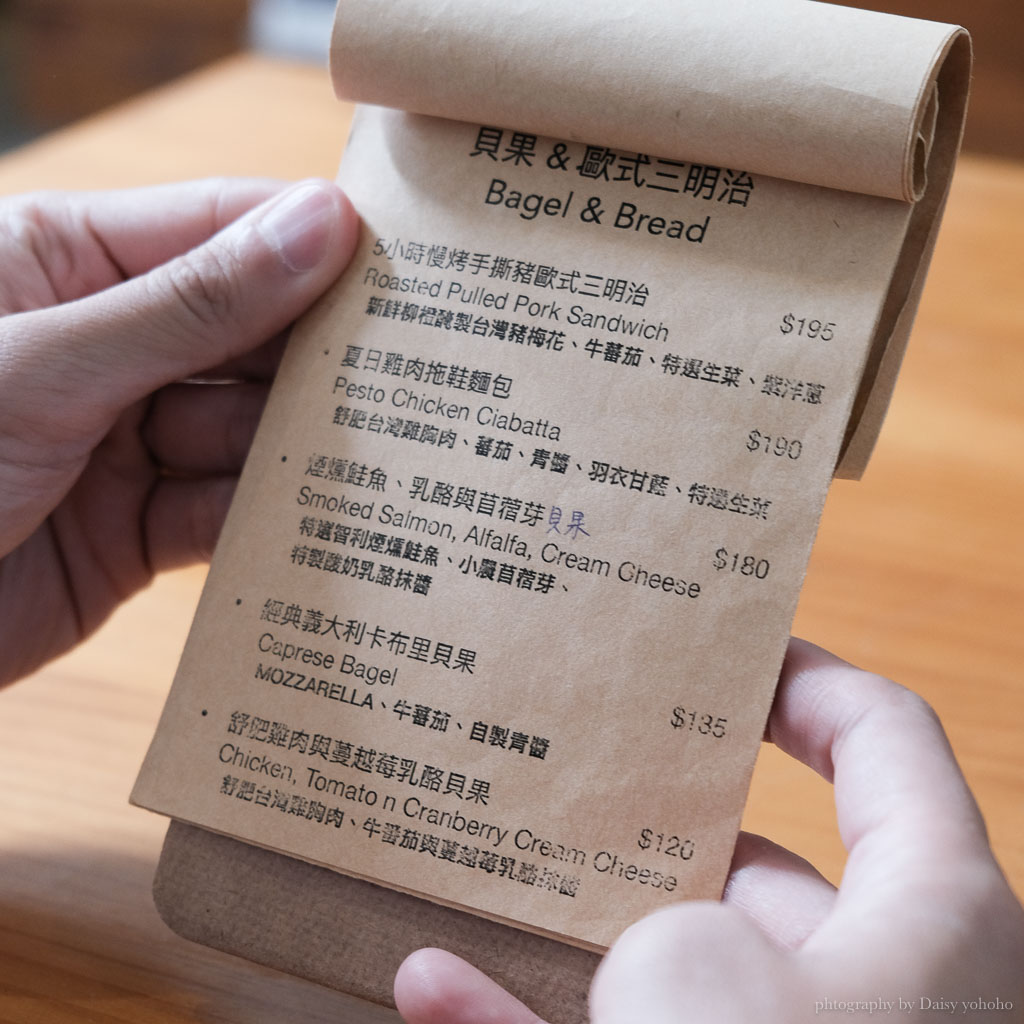 貝果 & 歐式三明治
Bagel & Bread
5小時慢烤手撕豬歐式三明治
Roasted Pulled Pork Sandwich
$195
新鮮柳橙醃製台灣豬梅花、牛蕃茄、特選生菜、紫洋蔥
• 夏日雞肉拖鞋麵包
Pesto Chicken Ciabatta
$190
舒肥台灣雞胸肉、蕃茄、青醬、羽衣甘藍、特選生菜
• 煙燻鮭魚、乳酪與苜蓿芽貝果
Smoked Salmon, Alfalfa, Cream Cheese
$180
特選智利煙燻鮭魚、小農苜蓿芽、
特製酸奶乳酪抹醬
• 經典義大利卡布里貝果
Caprese Bagel
$135
MOZZARELLA、牛蕃茄、自製青醬
• 舒肥雞肉與蔓越莓乳酪貝果
Chicken, Tomato n Cranberry Cream Cheese
$120
舒肥台灣雞胸肉、牛蕃茄與蔓越莓乳酪抹醬
phtography by Daisy yohoho